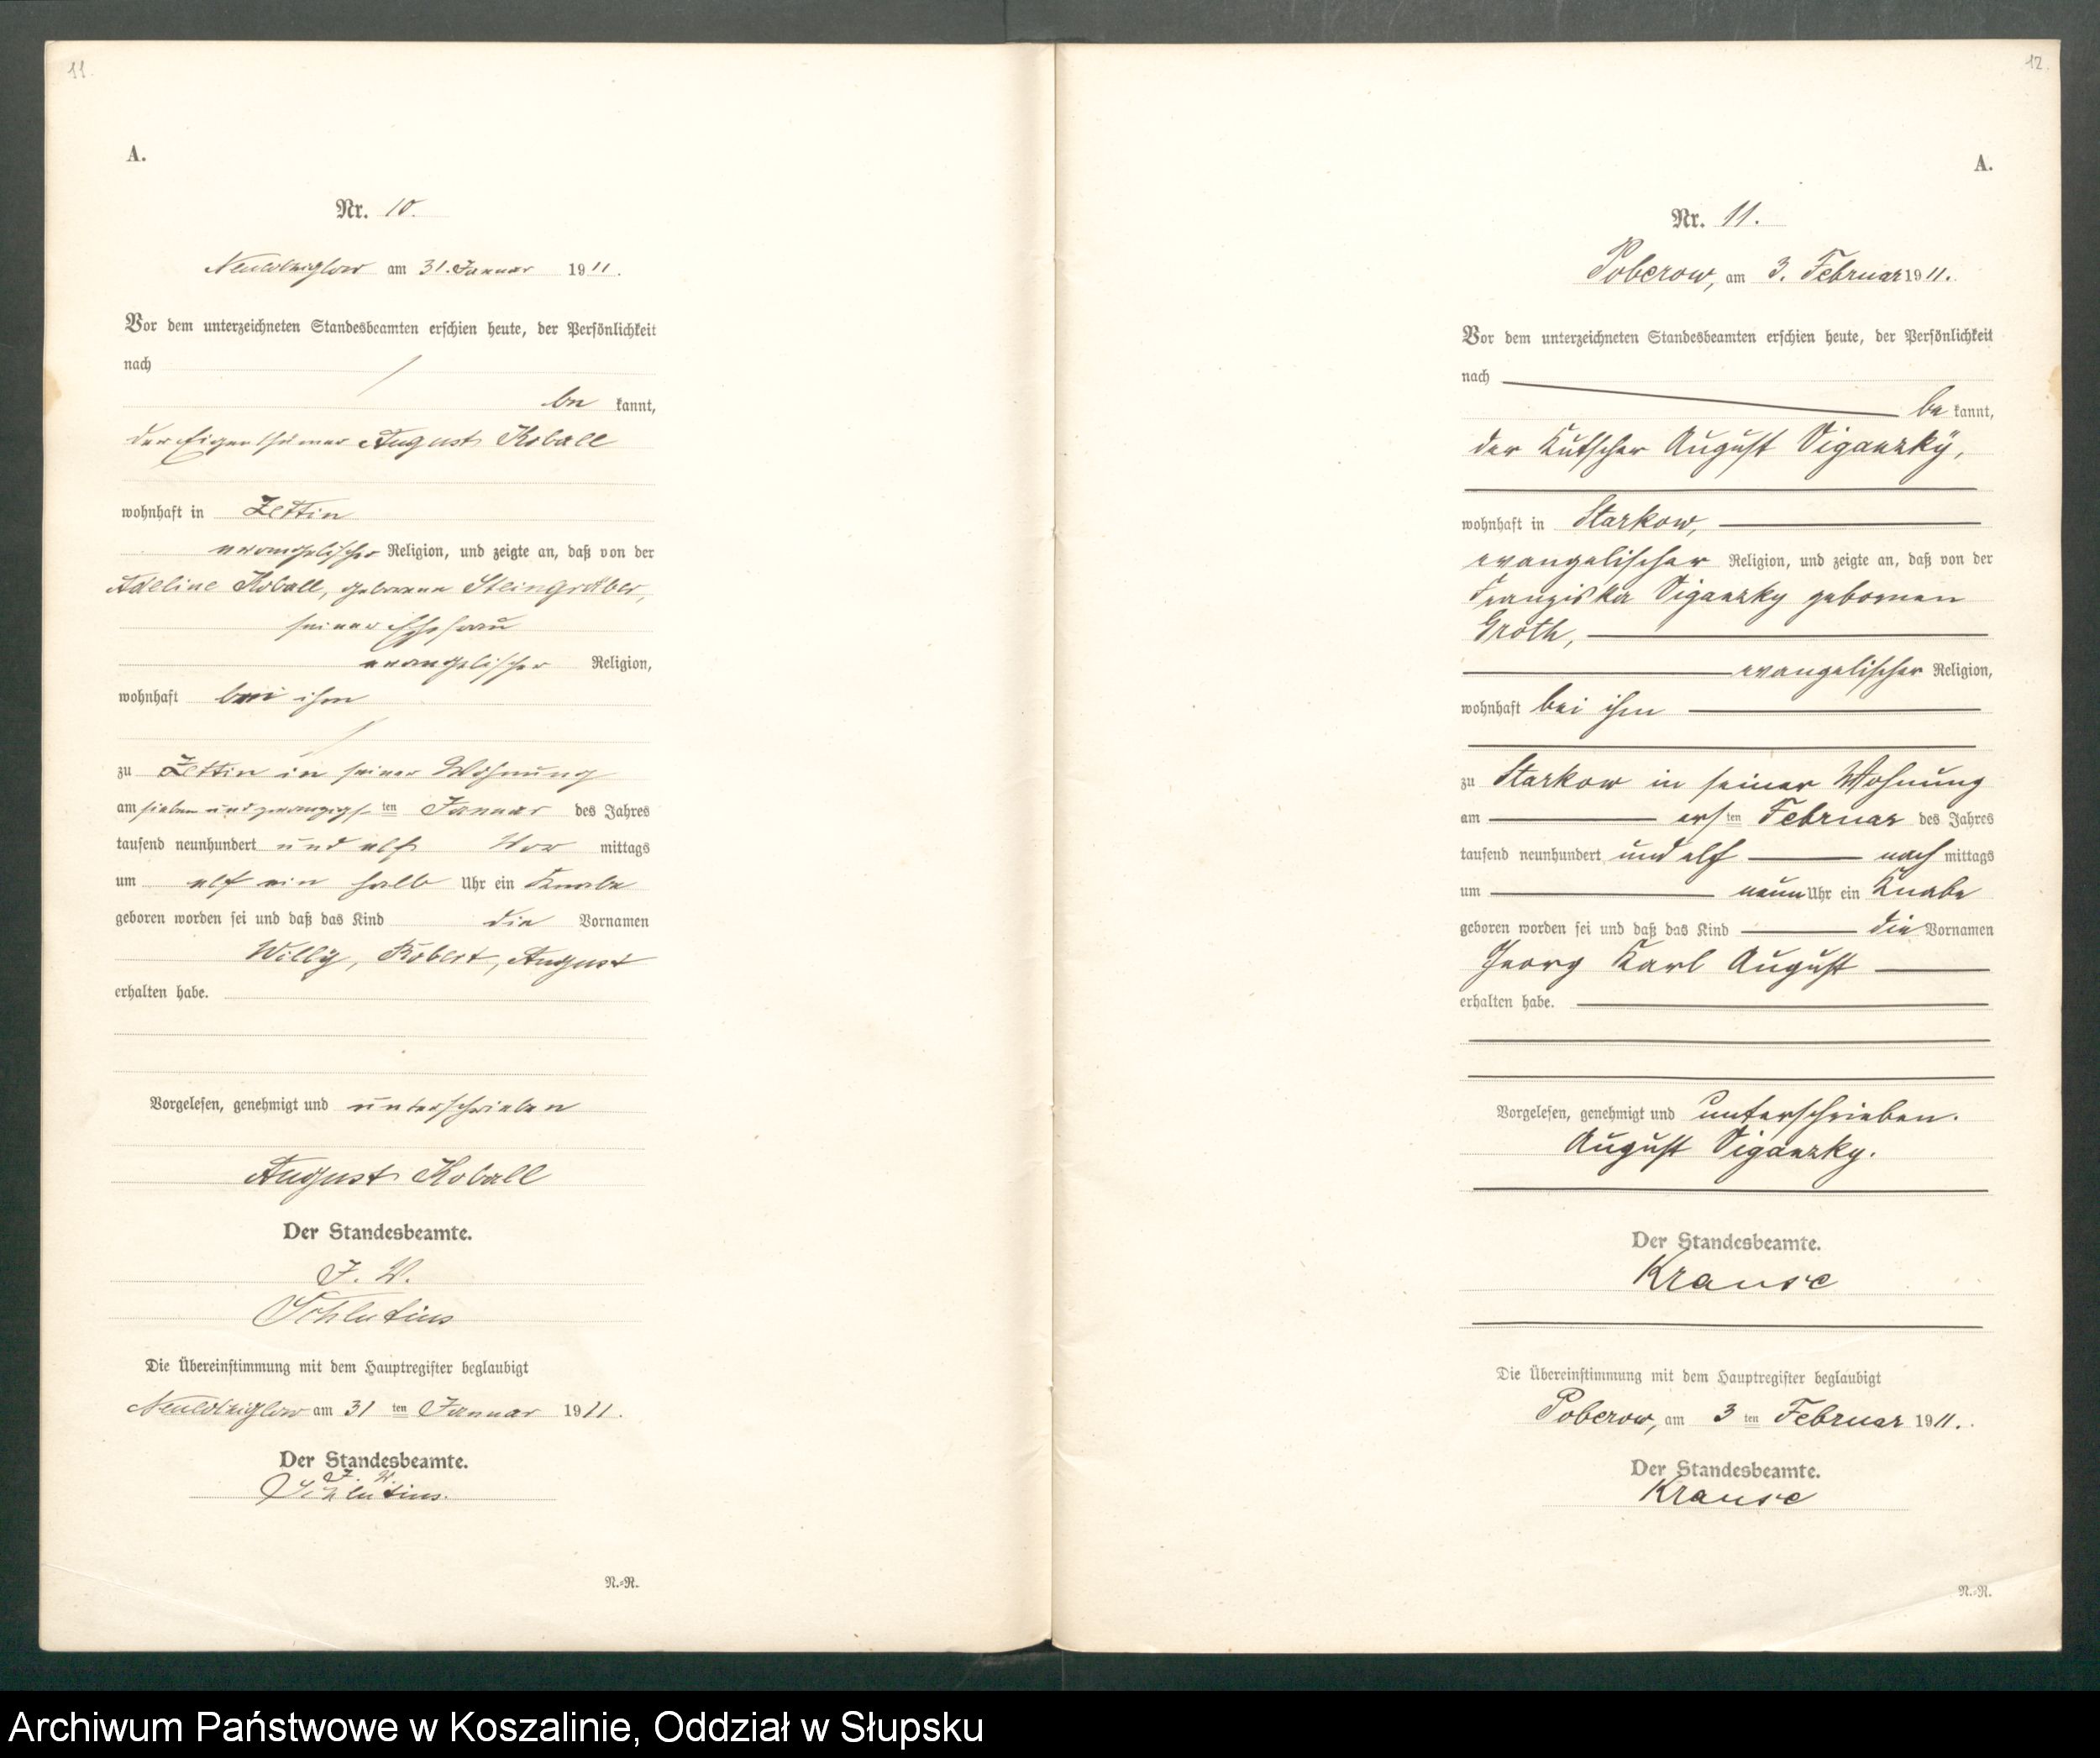 11.
A.
Nr. 10.
Neukolziglow am 31. Januar 1911.
Vor dem unterzeichneten Standesbeamten erschien heute, der Persönlichkeit
nach
be kannt,
der Eigenthümer August Koball
wohnhaft in Zettin
evangelischer Religion, und zeigte an, daß von der
Adeline Koball, geborene Steingräber,
seiner Ehefrau
evangelischer Religion,
wohnhaft bei ihm
zu Zettin in seiner Wohnung
am sieben und zwanzigsten Januar des Jahres
tausend neunhundert und elf Vor mittags
um elf ein halb Uhr ein Knabe
geboren worden sei und daß das Kind die Vornamen
Willy, Robert, August
erhalten habe.
Vorgelesen, genehmigt und unterschrieben
August Koball
Der Standesbeamte.
J. V.
Schlutius
Die Übereinstimmung mit dem Hauptregister beglaubigt
Neukolziglow am 31 ten Januar 1911.
Der Standesbeamte.
J. V.
Schlutius.
N.=R.
12.
A.
Nr. 11.
Poberow, am 3. Februar 1911.
Vor dem unterzeichneten Standesbeamten erschien heute, der Persönlichkeit
nach
be kannt,
der Kutscher August Viganzky,
wohnhaft in Starkow,
evangelischer Religion, und zeigte an, daß von der
Franziska Viganzky gebornen
Groth,
evangelischer Religion,
wohnhaft bei ihm
zu Starkow in seiner Wohnung
am ersten Februar des Jahres
tausend neunhundert und elf nach mittags
um neun Uhr ein Knabe
geboren worden sei und daß das Kind die Vornamen
Georg Karl August
erhalten habe.
Vorgelesen, genehmigt und unterschrieben.
August Viganzky.
Der Standesbeamte.
Krause
Die Übereinstimmung mit dem Hauptregister beglaubigt
Poberow, am 3 ten Februar 1911.
Der Standesbeamte.
Krause
N.=R.
Archiwum Państwowe w Koszalinie, Oddział w Słupsku